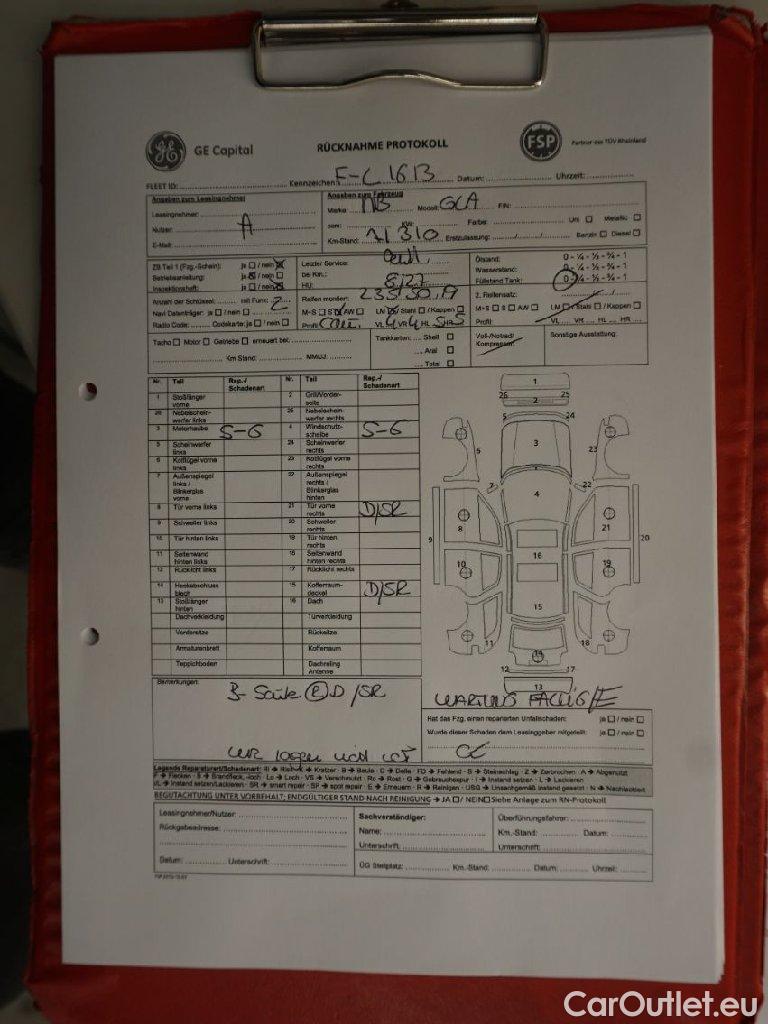 GE Capital
RÜCKNAHME PROTOKOLL
FSP
Partner des TÜV Rheinland
FLEET ID: Kennzeichen: F-C 1613 Datum: Uhrzeit:
Angaben zum Leasingnehmer
Leasingnehmer:
Nutzer: A
E-Mail:
Angaben zum Fahrzeug
Marke MB Modell: GLA FIN:
KW: Farbe: Uni Metallic
Km-Stand: 71310 Erstzulassung: Benzin Diesel
ZB Teil 1 (Fzg.-Schein): ja / nein
Betriebsanleitung: ja / nein
Inspektionsheft: ja / nein
Anzahl der Schlüssel: mit Funk: 2
Navi Datenträger: ja / nein
Radio Code: Codekarte: ja / nein
Letzter Service:
bei Km.:
HU: 8/22
Reifen montiert: 235 50 19
M-S S AW LM Stahl / Kappen
Profil VL VR HL HR
Ölstand: 0 - ¼ - ½ - ¾ - 1
Wasserstand:
Füllstand Tank: 0 - ¼ - ½ - ¾ - 1
2. Reifensatz:
M-S S AW LM Stahl / Kappen
Profil: VL VR HL HR
Tacho Motor Getriebe erneuert bei:
Km Stand: NM/UJ:
Tankkarten: Shell
Aral
Total
Voll-/Notrad/
Kompressor:
Sonstige Ausstattung:
Nr. Teil Rep.-/ Schadenart Nr. Teil Rep.-/ Schadenart
1 Stoßfänger vorne 2 Grill/Vorderseite
26 Nebelscheinwerfer links 25 Nebelscheinwerfer rechts
3 Motorhaube S-G 4 Windschutzscheibe S-G
5 Scheinwerfer links 24 Scheinwerfer rechts
6 Kotflügel vorne links 23 Kotflügel vorne rechts
7 Außenspiegel links / Blinkerglas vorne 22 Außenspiegel rechts / Blinkerglas hinten
8 Tür vorne links 21 Tür vorne rechts D/SR
9 Schweller links 20 Schweller rechts
10 Tür hinten links 19 Tür hinten rechts
11 Seitenwand hinten links 18 Seitenwand hinten rechts
12 Rücklicht links 17 Rücklicht rechts
14 Heckabschlussblech 15 Kofferraumdeckel D/SR
13 Stoßfänger hinten 16 Dach
Dachverkleidung Türverkleidung
Vordersitze Rücksitze
Armaturenbrett Kofferraum
Teppichboden Dachreling Antenne
1
26 25
2
5 24
3
5 23
7 22
4
8 21
9 20
16
10 19
15
11 18
14
12 17
13
Bemerkungen:
B-Säule R D/SR
WARTUNG FÄLLIG/E
Hat das Fzg. einen reparierten Unfallschaden: ja / nein
Wurde dieser Schaden dem Leasinggeber mitgeteilt: ja / nein
Legende Reparaturart/Schadenart: K → Kratzer · B → Beule · C → Delle · FD → Fehlend · S → Steinschlag · Z → Zerbrochen · A → Abgenutzt
F → Flecken · Lo → Loch · VS → Verschmutzt · Ro → Rost · G → Gebrauchsspur · I → Instand setzen · L → Lackieren
I/L → Instand setzen/Lackieren · SR → smart repair · SP → spot repair · E → Erneuern · R → Reinigen · USG → Unsachgemäß instand gesetzt · N → Nachlackiert
BEGUTACHTUNG UNTER VORBEHALT; ENDGÜLTIGER STAND NACH REINIGUNG → JA / NEIN Siehe Anlage zum RN-Protokoll
Leasingnehmer/Nutzer:
Rückgabeadresse:
Datum: Unterschrift:
Sachverständiger:
Name:
Unterschrift:
Überführungsfahrer:
Km.-Stand: Datum:
Unterschrift:
ÜG Stellplatz: Km.-Stand: Datum: Uhrzeit:
CarOutlet.eu